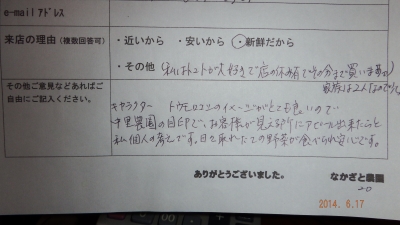 e-mail アドレス
来店の理由（複数回答可）
・近いから ・安いから ・新鮮だから
・その他（私はトマトが大好きで店の休み有でその分まで買います。）
家族は2人
その他ご意見などあればご
自由にご記入ください。
キャラクター トウモロコシのイメージがとても良いので
中里農園の目印で、お客様が見える所にアピール出来たらと
私個人の考えです。日々取れたての野菜が食べられ安心です。
ありがとうございました。 なかざと農園
2014.6.17